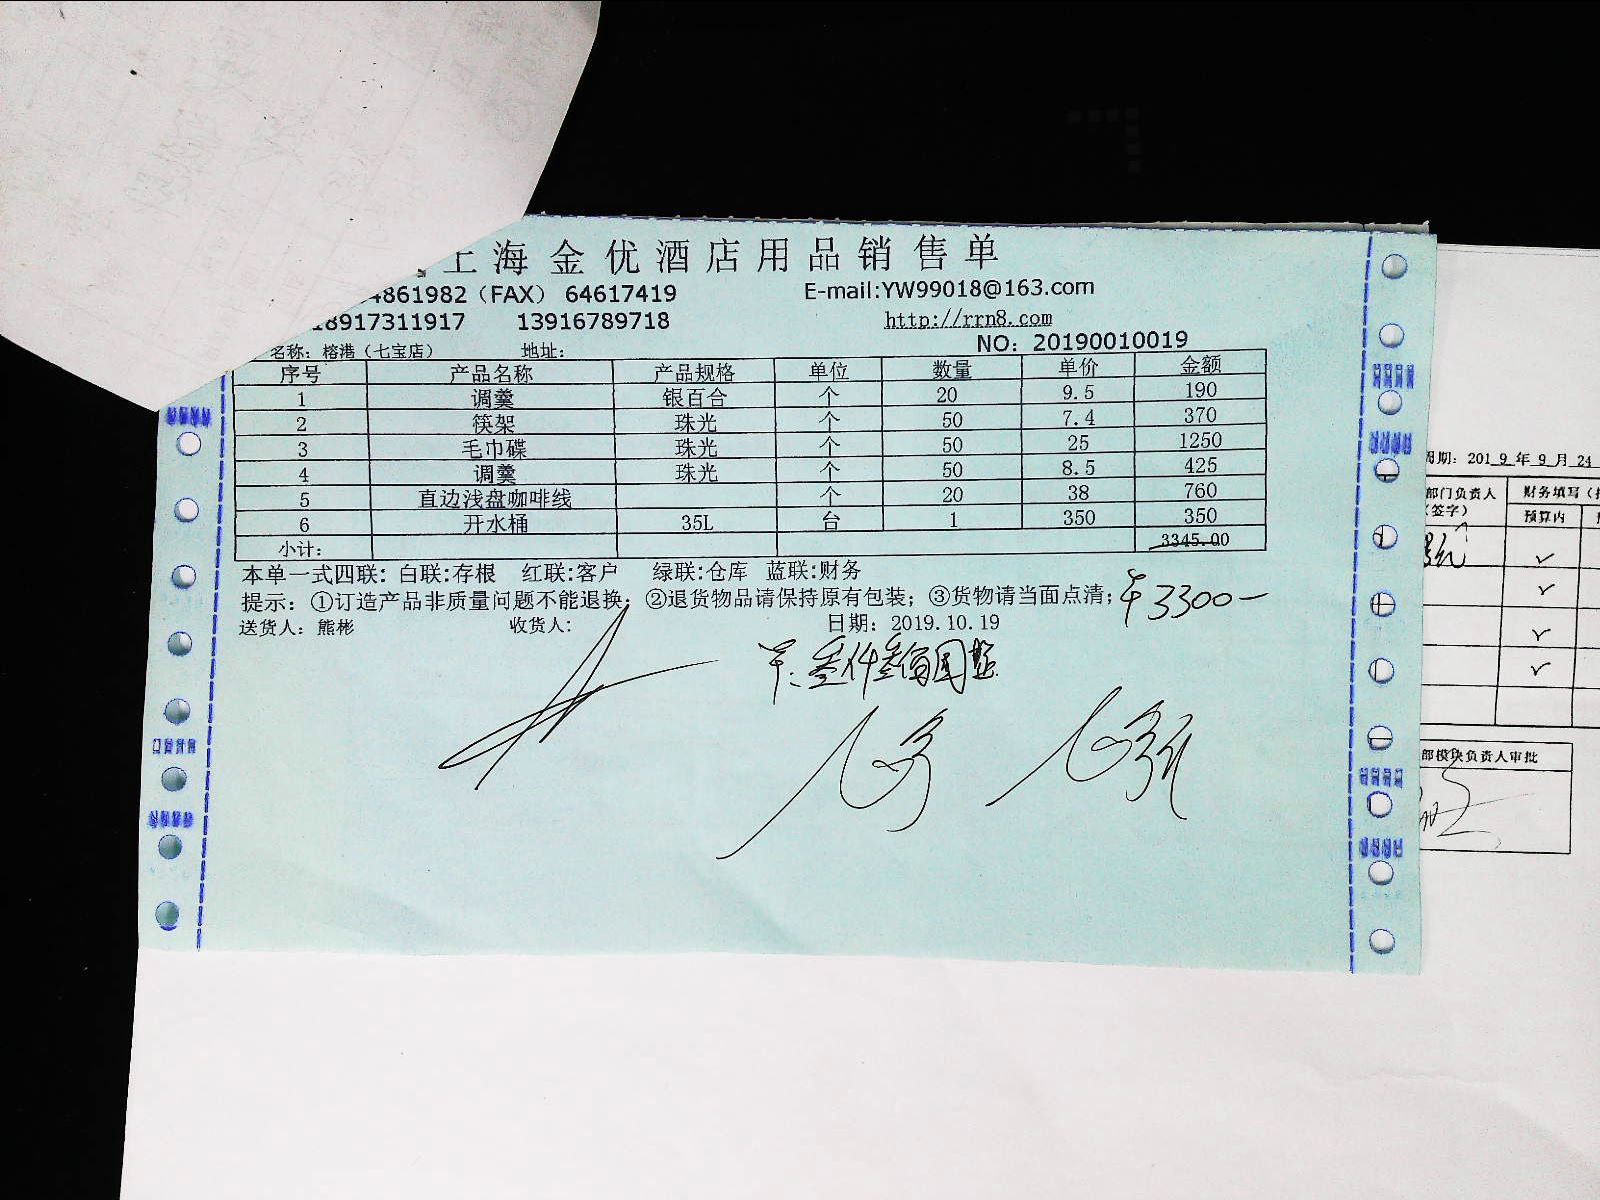 上海金优酒店用品销售单
4861982（FAX） 64617419 E-mail:YW99018@163.com
18917311917 13916789718 http://rrn8.com
NO：20190010019
名称：榕港（七宝店） 地址：
序号 产品名称 产品规格 单位 数量 单价 金额
1 调羹 银百合 个 20 9.5 190
2 筷架 珠光 个 50 7.4 370
3 毛巾碟 珠光 个 50 25 1250
4 调羹 珠光 个 50 8.5 425
5 直边浅盘咖啡线 个 20 38 760
6 开水桶 35L 台 1 350 350
小计： 3345.00
本单一式四联：白联：存根 红联：客户 绿联：仓库 蓝联：财务
提示：①订造产品非质量问题不能退换；②退货物品请保持原有包装；③货物请当面点清；
¥3300—
送货人：熊彬 收货人： 日期：2019.10.19
¥：叁仟叁佰圆整
周期：2019年9月24
部门负责人 财务填写（
（签字） 预算内
部模块负责人审批